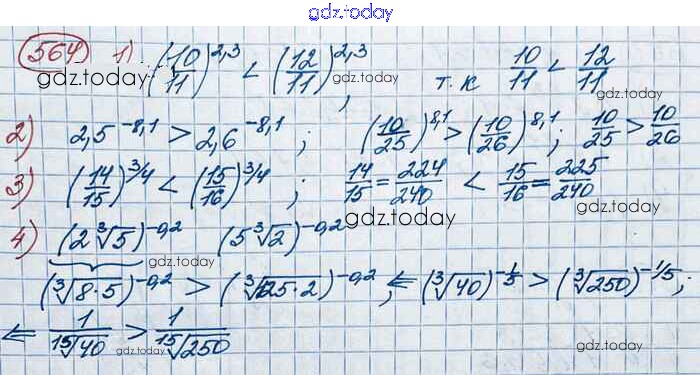 gdz.today
564 1) (10/11)^2,3 < (12/11)^2,3, т.к 10/11 < 12/11
gdz.today gdz.today gdz.today
2) 2,5^-8,1 > 2,6^-8,1 ; (10/25)^8,1 > (10/26)^8,1 ; 10/25 > 10/26
gdz.today gdz.today
3) (14/15)^3/4 < (15/16)^3/4 ; 14/15 = 224/240 < 15/16 = 225/240
gdz.today gdz.today
4) (2∛5)^-0,2 (5∛2)^-0,2
gdz.today gdz.today
(∛8·5)^-0,2 > (∛125·2)^-0,2, ⇐ (∛40)^-1/5 > (∛250)^-1/5 ;
gdz.today
⇐ 1/¹⁵√40 > 1/¹⁵√250
gdz.today gdz.today